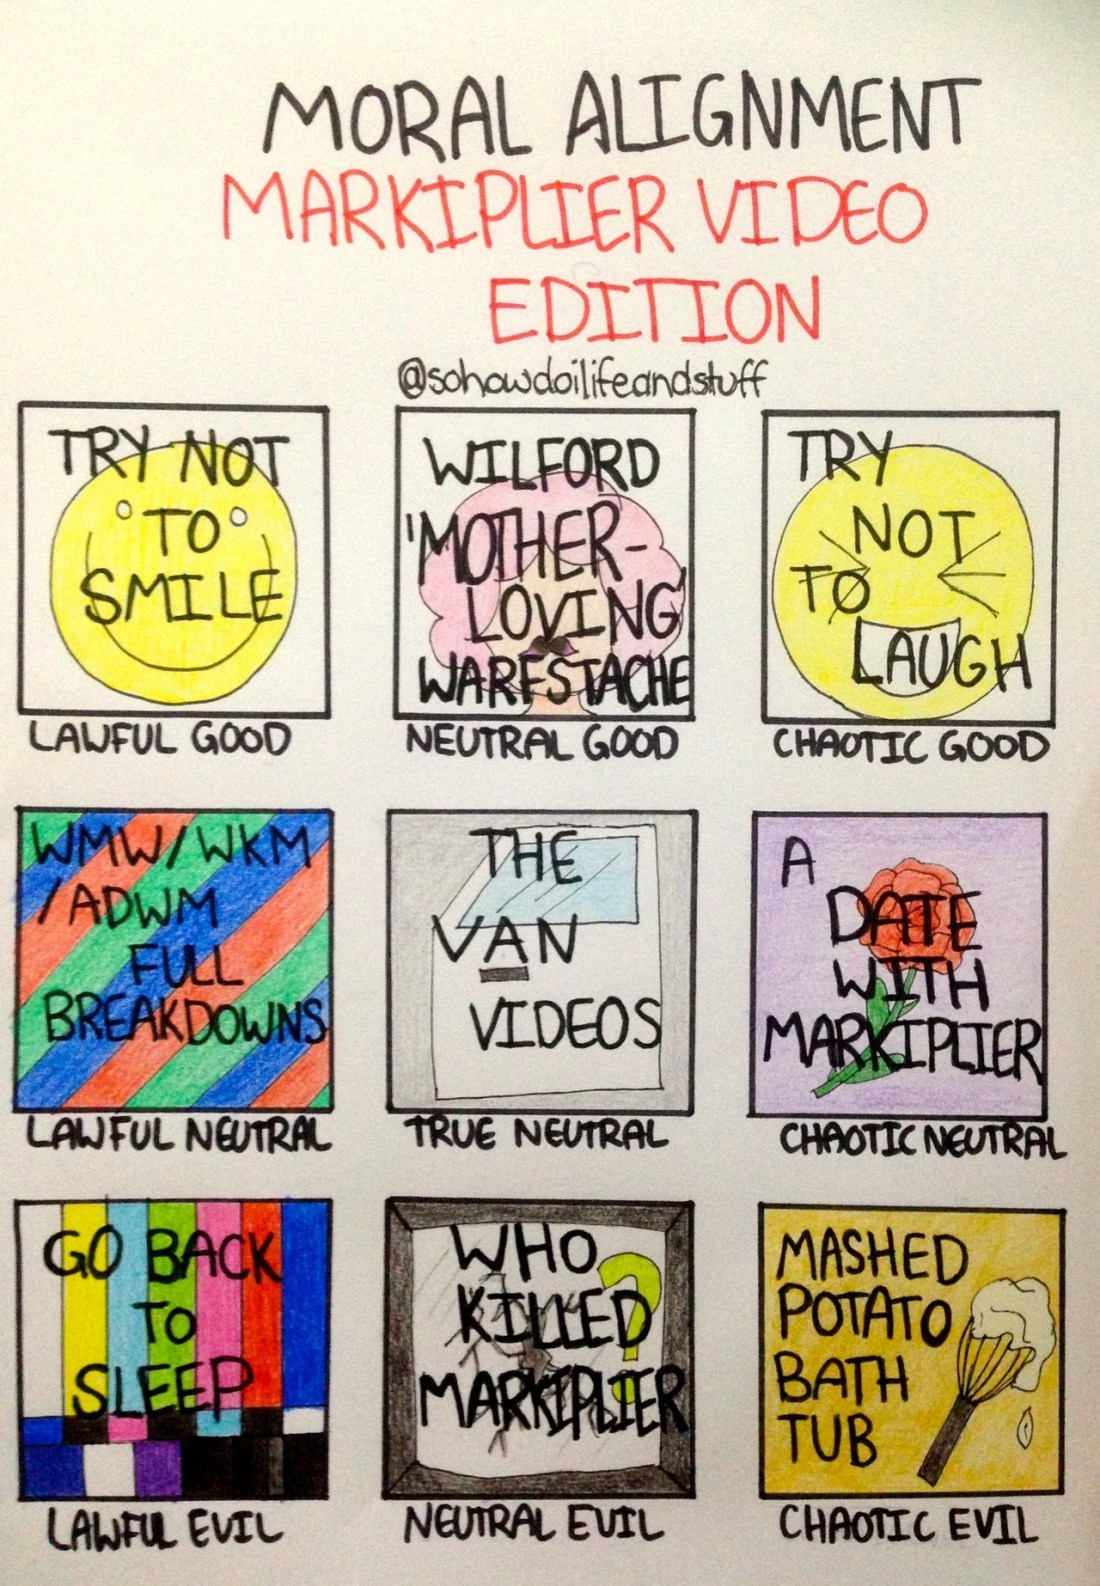 MORAL ALIGNMENT
MARKIPLIER VIDEO
EDITION
@sohowdoilifeandstuff
TRY NOT
TO
SMILE
LAWFUL GOOD
WILFORD
'MOTHER-
LOVING
WARFSTACHE
NEUTRAL GOOD
TRY
NOT
TO
LAUGH
CHAOTIC GOOD
WMW/WKM
/ADWM
FULL
BREAKDOWNS
LAWFUL NEUTRAL
THE
VAN
VIDEOS
TRUE NEUTRAL
A
DATE
WITH
MARKIPLIER
CHAOTIC NEUTRAL
GO BACK
TO
SLEEP
LAWFUL EVIL
WHO
KILLED
MARKIPLIER
?
NEUTRAL EVIL
MASHED
POTATO
BATH
TUB
CHAOTIC EVIL